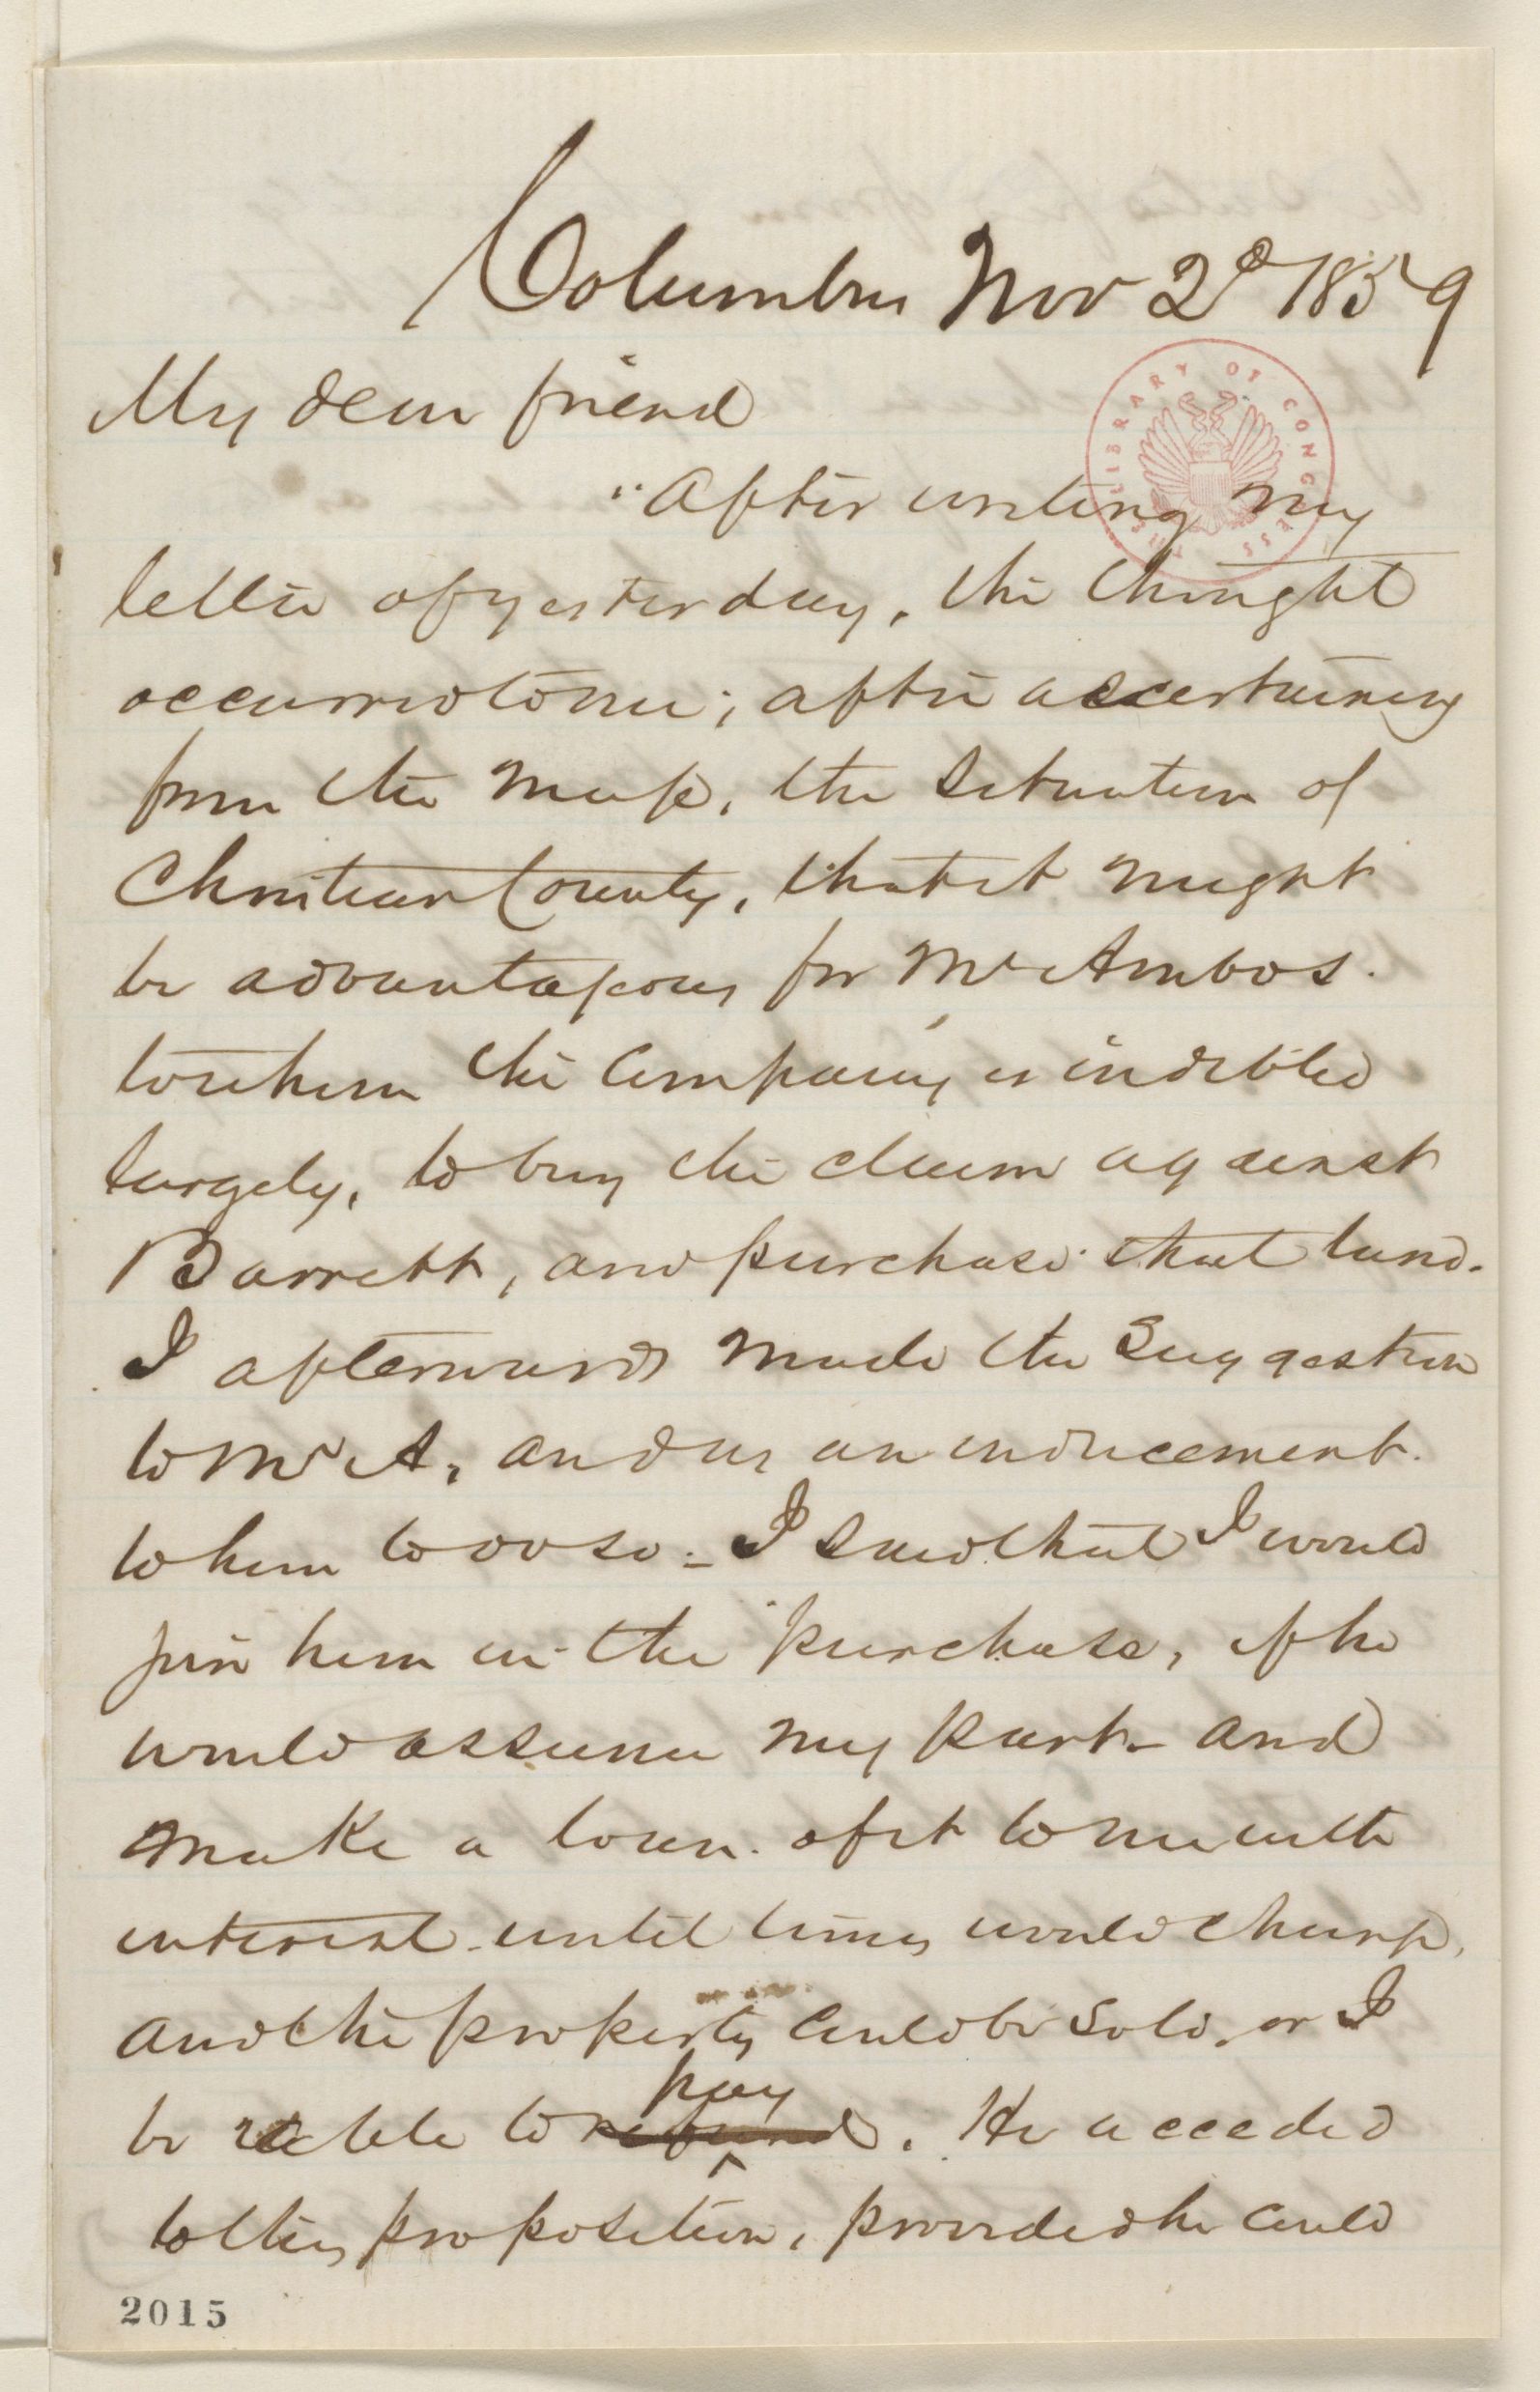 Columbus Nov 2d 1859
My dear friend
THE LIBRARY OF CONGRESS
After writing my
letter of yesterday, the thought
occurred to me; after ascertaining
from the map, the situation of
Christian County, that it might
be advantageous for Mr Ambos.
to whom the Company is indebted
largely, to buy the claim against
Barrett, and purchase that land.
I afterwards made the suggestion
to Mr A, and as an inducement.
to him to do so - I said that I would
join him in the purchase, if he
would assume my part - and
make a loan of it to me with
interest until times would change,
and the property could be sold, or I
be able to refund pay. He acceded
to this proposition, provided he could
2015